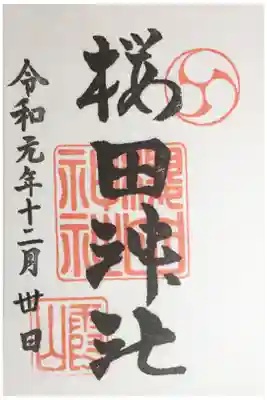 桜田神社
櫻田
神社
令和元年十二月丗日
霞山